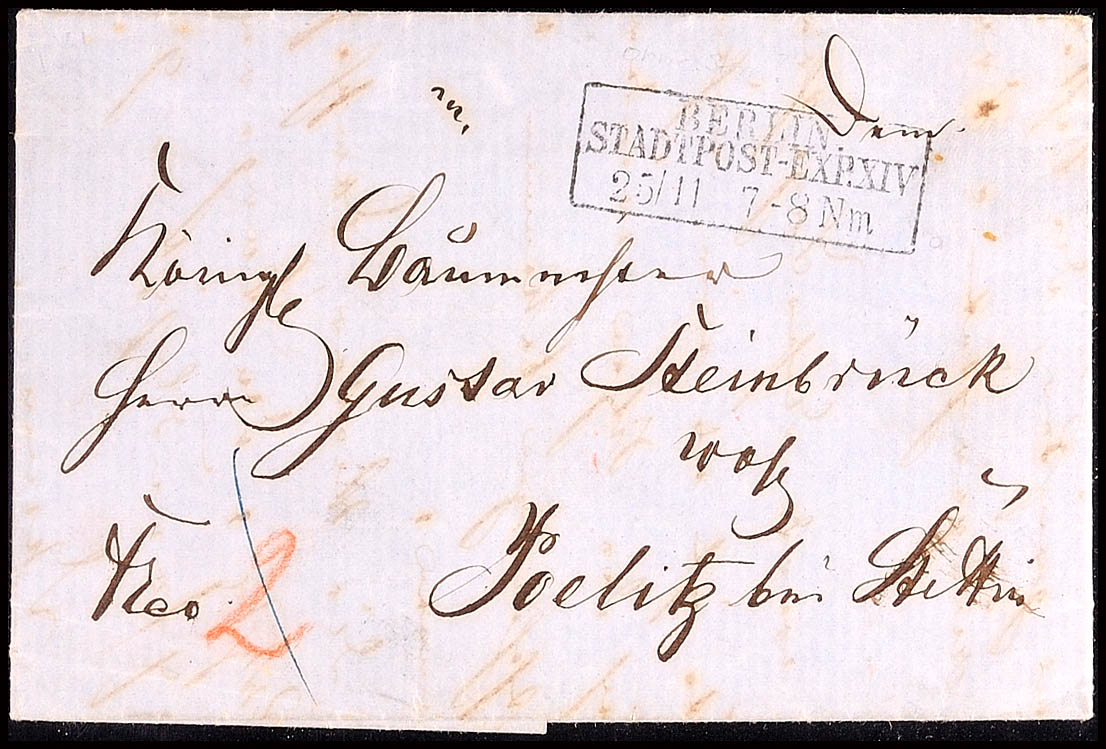 Dem
BERLIN
STADTPOST-EXP.XIV
25/11 7-8 Nm
Königl Baumeister
Herrn Gustav Steinbrück
Poelitz bei Stettin
Fco.
2